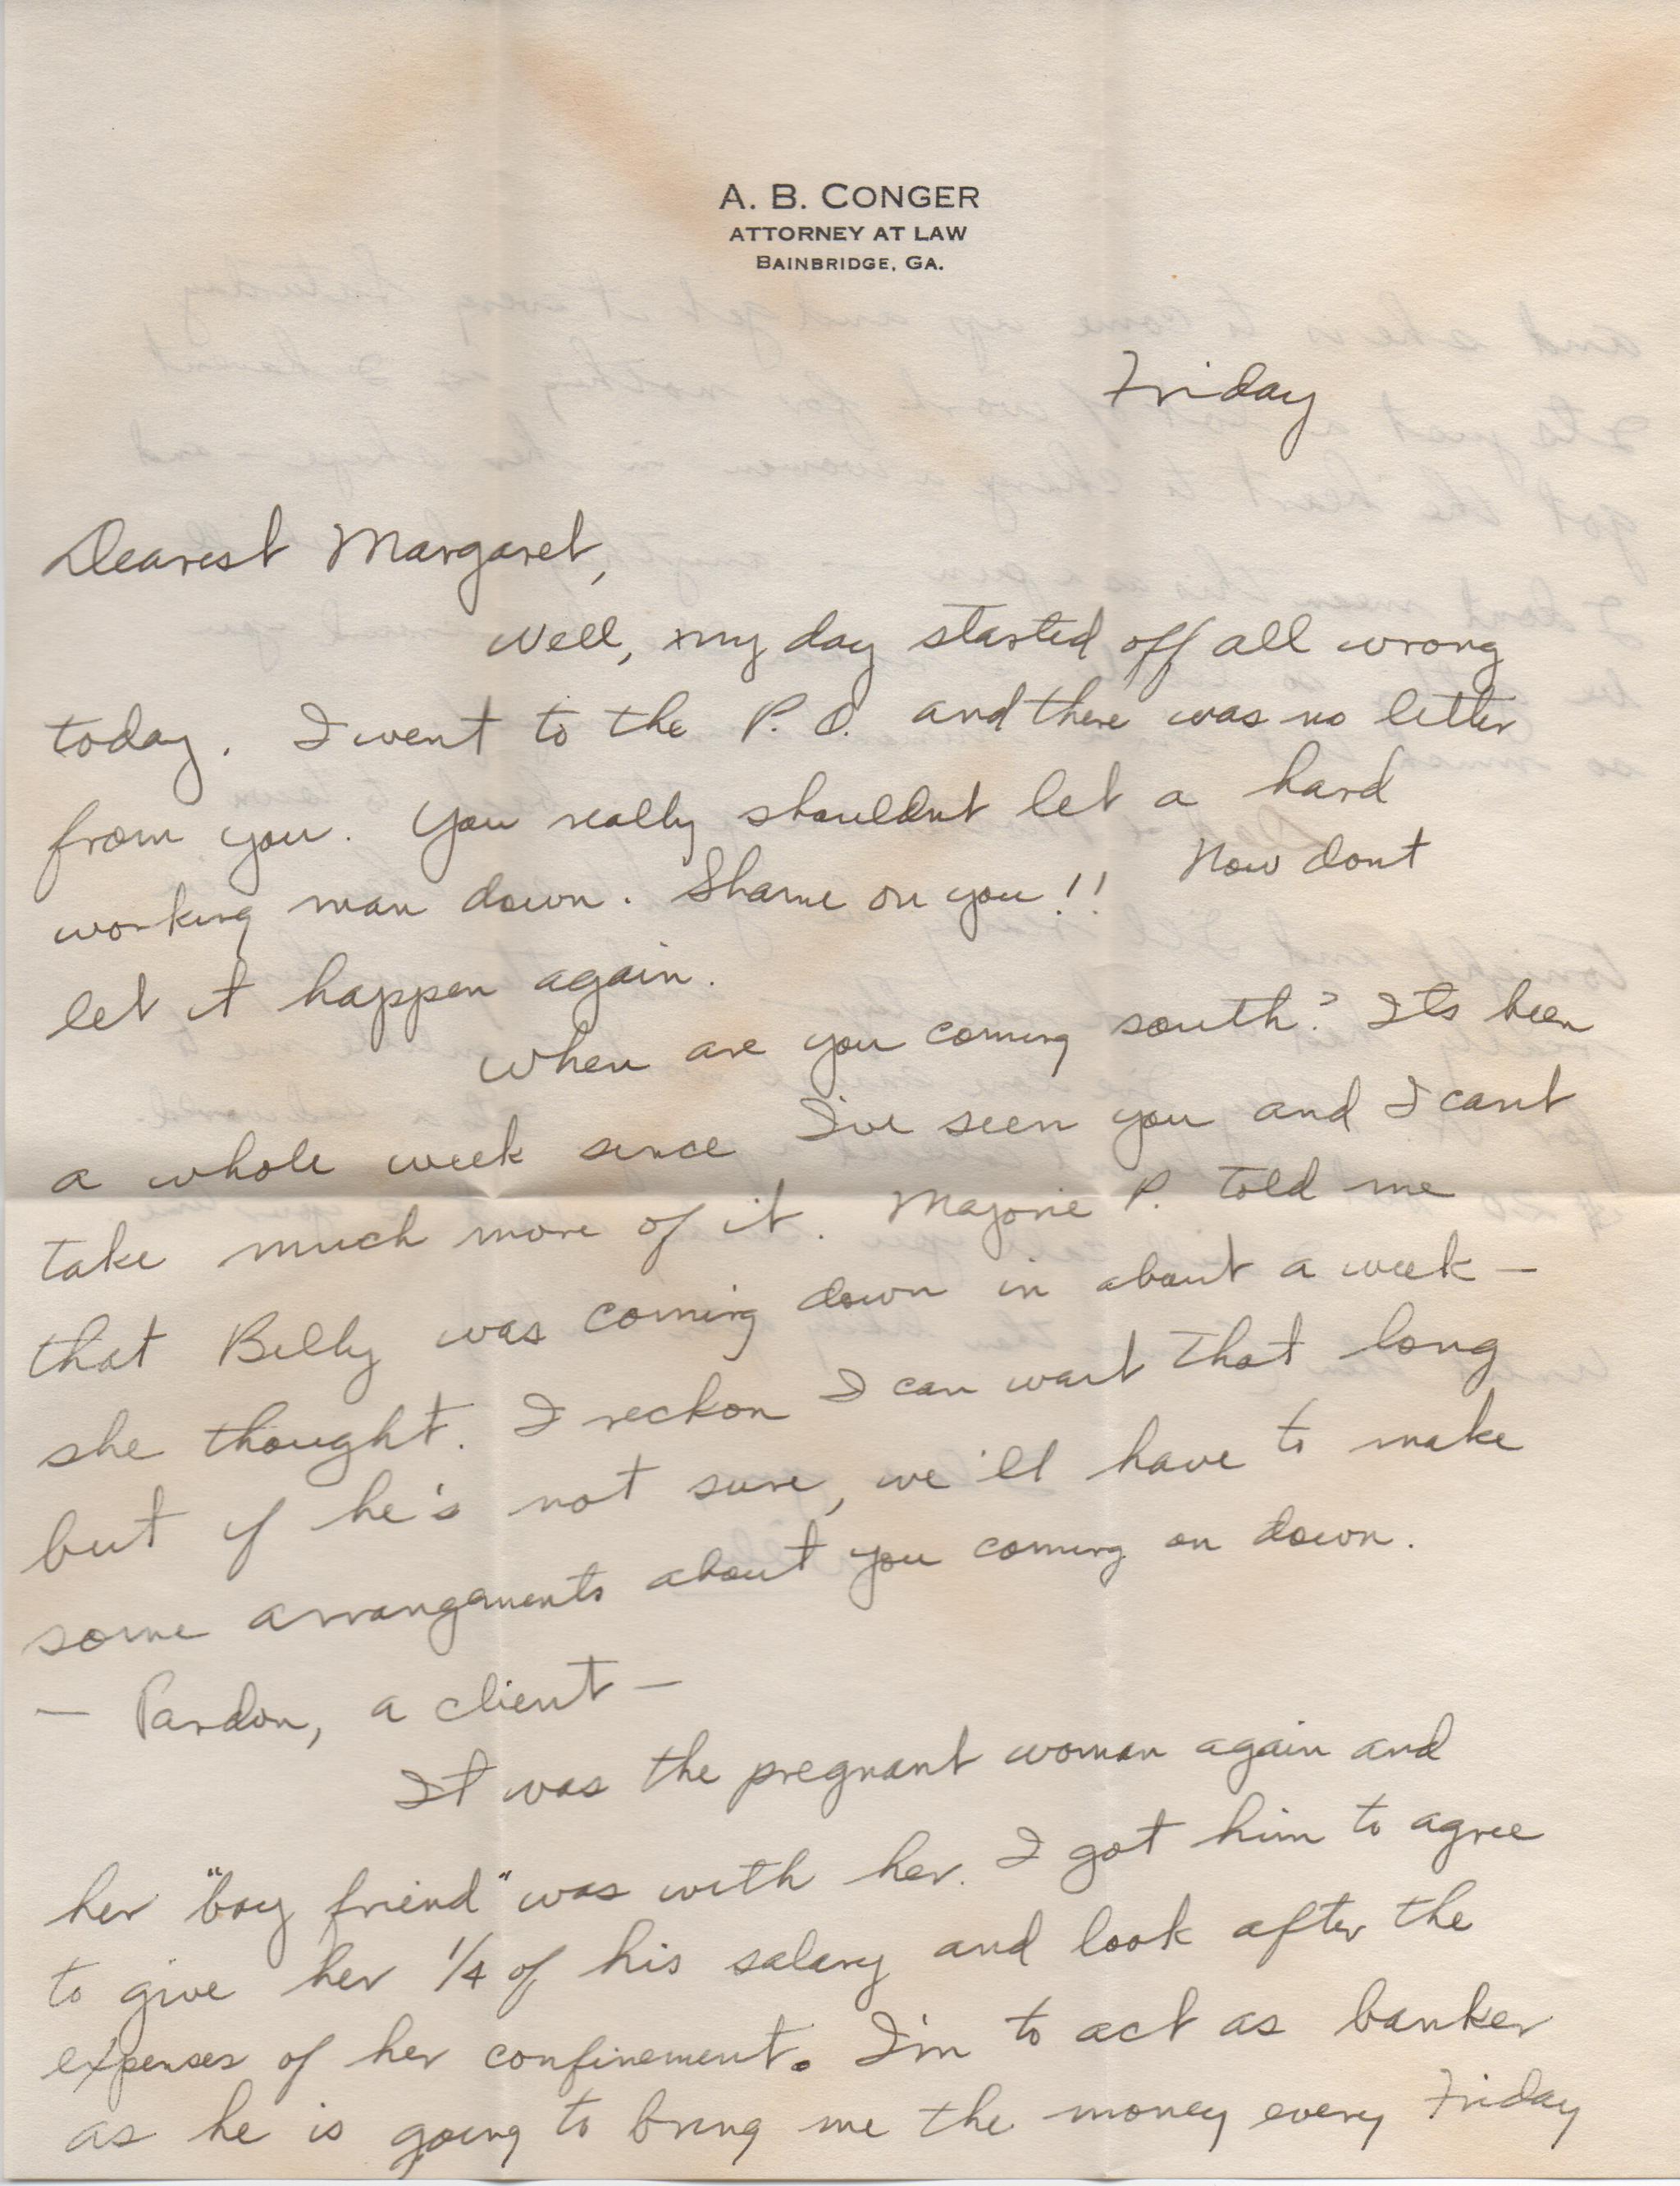 A. B. CONGER
ATTORNEY AT LAW
BAINBRIDGE, GA.
Friday
Dearest Margaret,
Well, my day started off all wrong
today. I went to the P. O. and there was no letter
from you. You really shouldnt let a hard
working man down. Shame on you!! Now dont
let it happen again.
When are you coming south? Its been
a whole week since I've seen you and I cant
take much more of it. Majorie P. told me
that Billy was coming down in about a week —
she thought. I reckon I can wait that long
but if he's not sure, we'll have to make
some arrangements about you coming on down.
— Pardon, a client —
It was the pregnant woman again and
her "boy friend" was with her. I got him to agree
to give her 1/4 of his salary and look after the
expenses of her confinement. I'm to act as banker
as he is going to bring me the money every Friday